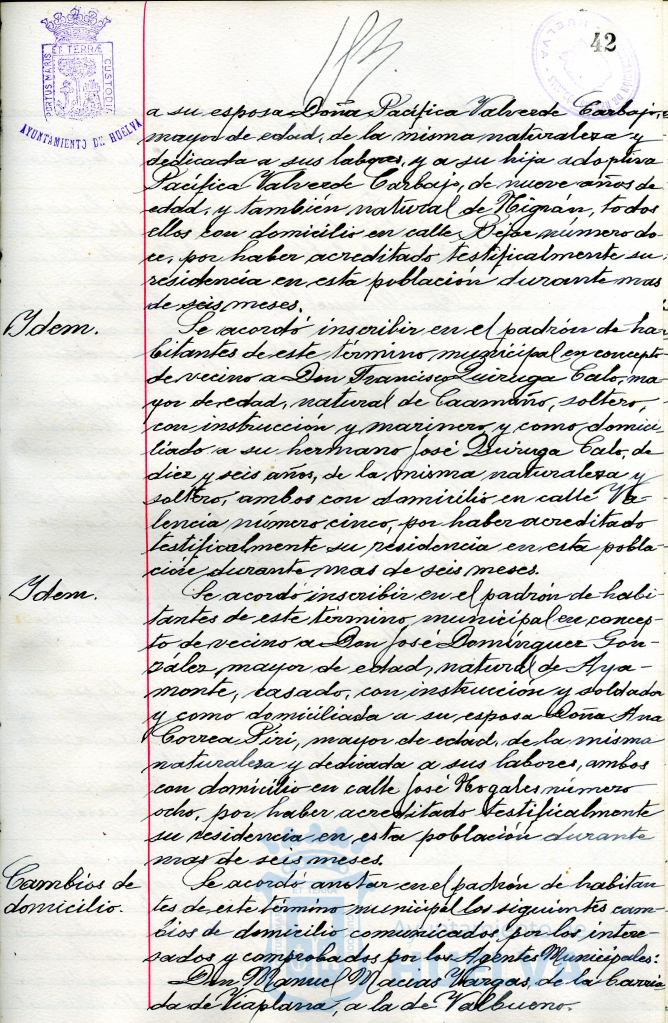 42
PORTUS MARIS ET TERRÆ CUSTODIA
AYUNTAMIENTO DE HUELVA
HUELVA
a su esposa Doña Pacífica Valverde Carbajo,
mayor de edad, de la misma naturaleza y
dedicada a sus labores, y a su hija adoptiva
Pacífica Valverde Carbajo, de nueve años de
edad, y también natural de Nigrán, todos
ellos con domicilio en calle Béjar número do-
ce, por haber acreditado testificalmente su
residencia en esta población durante mas
de seis meses.
Idem.
Se acordó inscribir en el padrón de ha-
bitantes de este término municipal en concepto
de vecino a Don Francisco Quiruga Calo, ma-
yor de edad, natural de Caamaño, soltero,
con instrucción y marinero, y como domici-
liado a su hermano José Quiruga Calo, de
diez y seis años, de la misma naturaleza y
soltero, ambos con domicilio en calle Va-
lencia número cinco, por haber acreditado
testificalmente su residencia en esta pobla-
ción durante mas de seis meses.
Idem.
Se acordó inscribir en el padrón de habi-
tantes de este término municipal en concep-
to de vecino a Don José Domínguez Gon-
zález, mayor de edad, natural de Aya-
monte, casado, con instrucción y soldador
y como domiciliada a su esposa Doña Ana
Correa Piri, mayor de edad, de la misma
naturaleza y dedicada a sus labores, ambos
con domicilio en calle José Nogales número
ocho, por haber acreditado testificalmente
su residencia en esta población durante
mas de seis meses.
Cambios de
domicilio.
Se acordó anotar en el padrón de habitan-
tes de este término municipal los siguientes cam-
bios de domicilio comunicados por los intere-
sados y comprobados por los Agentes Municipales:
Don Manuel Macias Vargas, de la Barria-
da de Viaplana, a la de Valbueno.
HUELVA